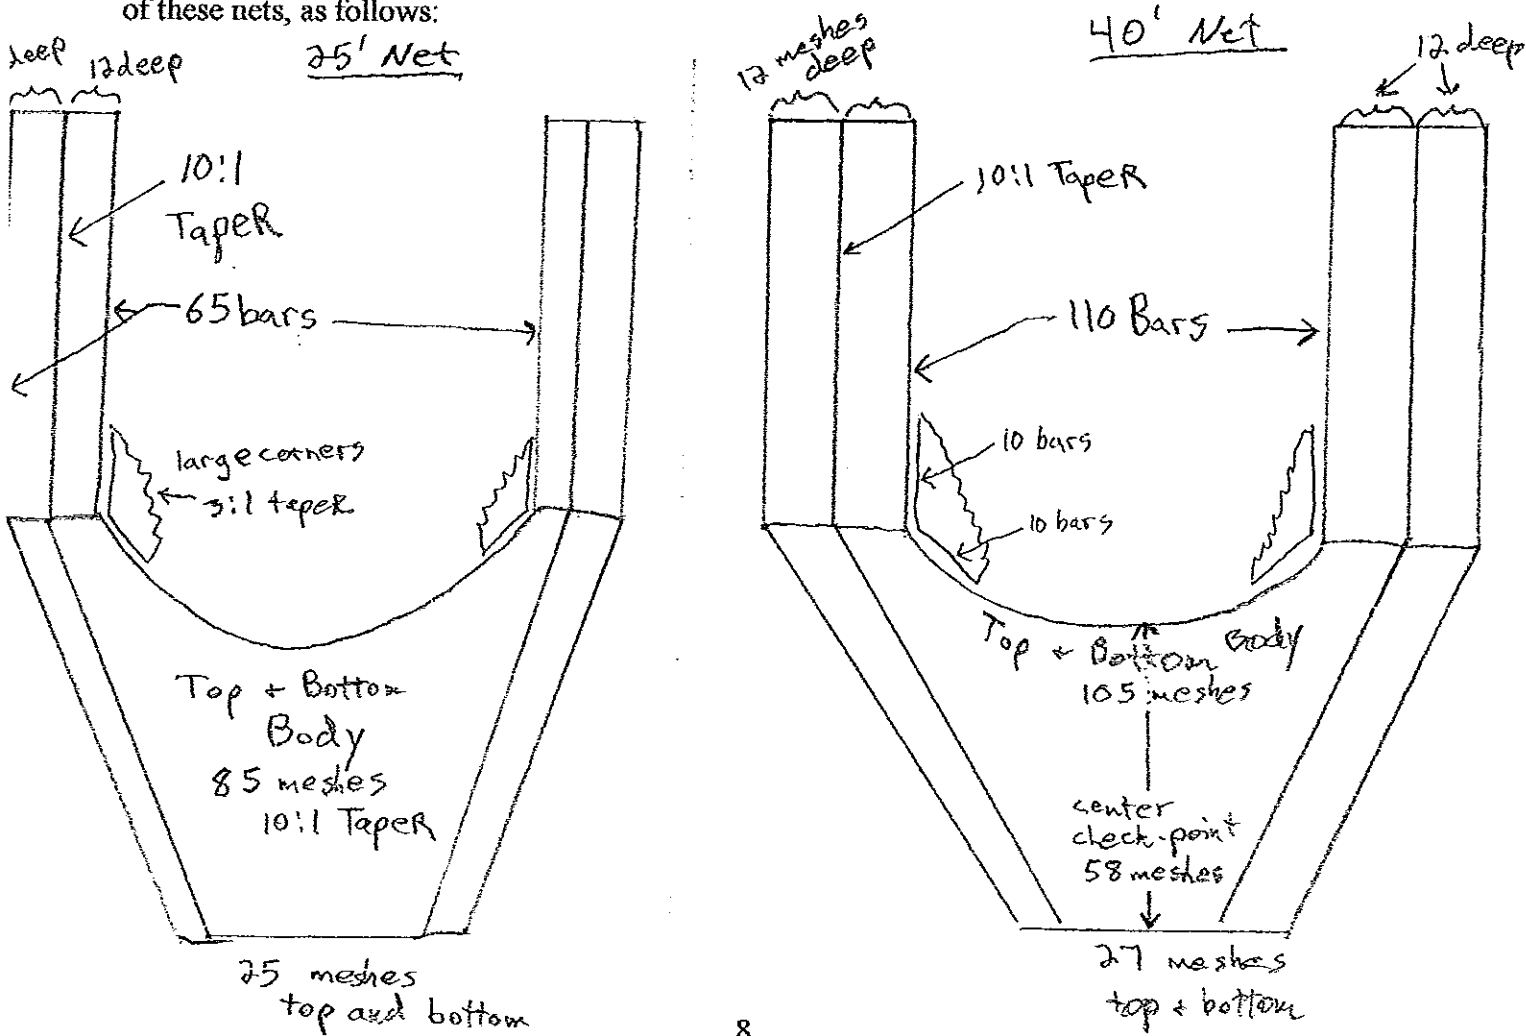 of these nets, as follows:
25' Net
deep
12 deep
10:1
TapeR
65 bars
large corners
3:1 tapeR
Top + Bottom
Body
85 meshes
10:1 TapeR
25 meshes
top and bottom
40' Net
12 meshes
deep
12 deep
10:1 TapeR
110 Bars
10 bars
10 bars
Top + Bottom Body
105 meshes
center
check-point
58 meshes
27 meshes
top + bottom
8